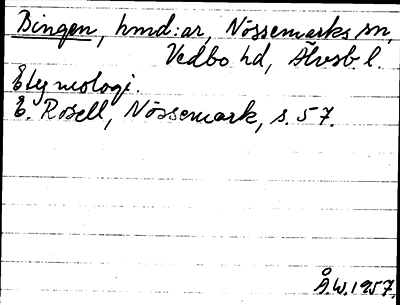 Dingen, hmd:ar, Nössemarks sn,
Vedbo hd, Älvsb. l.
Etymologi.
E. Rosell, Nössemark, s. 57.
Å.W. 1957.